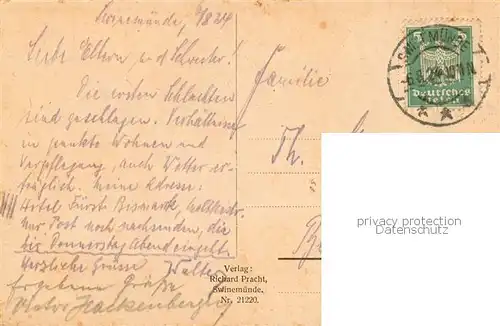 Swinemünde, 6/8 24
Liebe Eltern u. d Schwester!
Die ersten Schlachten
sind geschlagen. Verhältnisse
in punkto Wohnen und
Verpflegung, auch Wetter er-
träglich. Meine Adresse:
Hotel Fürst Bismarck,
nur Post noch nachsenden, die
bis Donnerstag Abend eingeht
Herzliche Grüsse Walter
Ergebene Grüße
Hackenberger
Familie
Th.
SWINEMÜNDE
5
Deutsches
Reich
privacy protection
Datenschutz
Verlag:
Richard Pracht,
Swinemünde.
Nr. 21220.